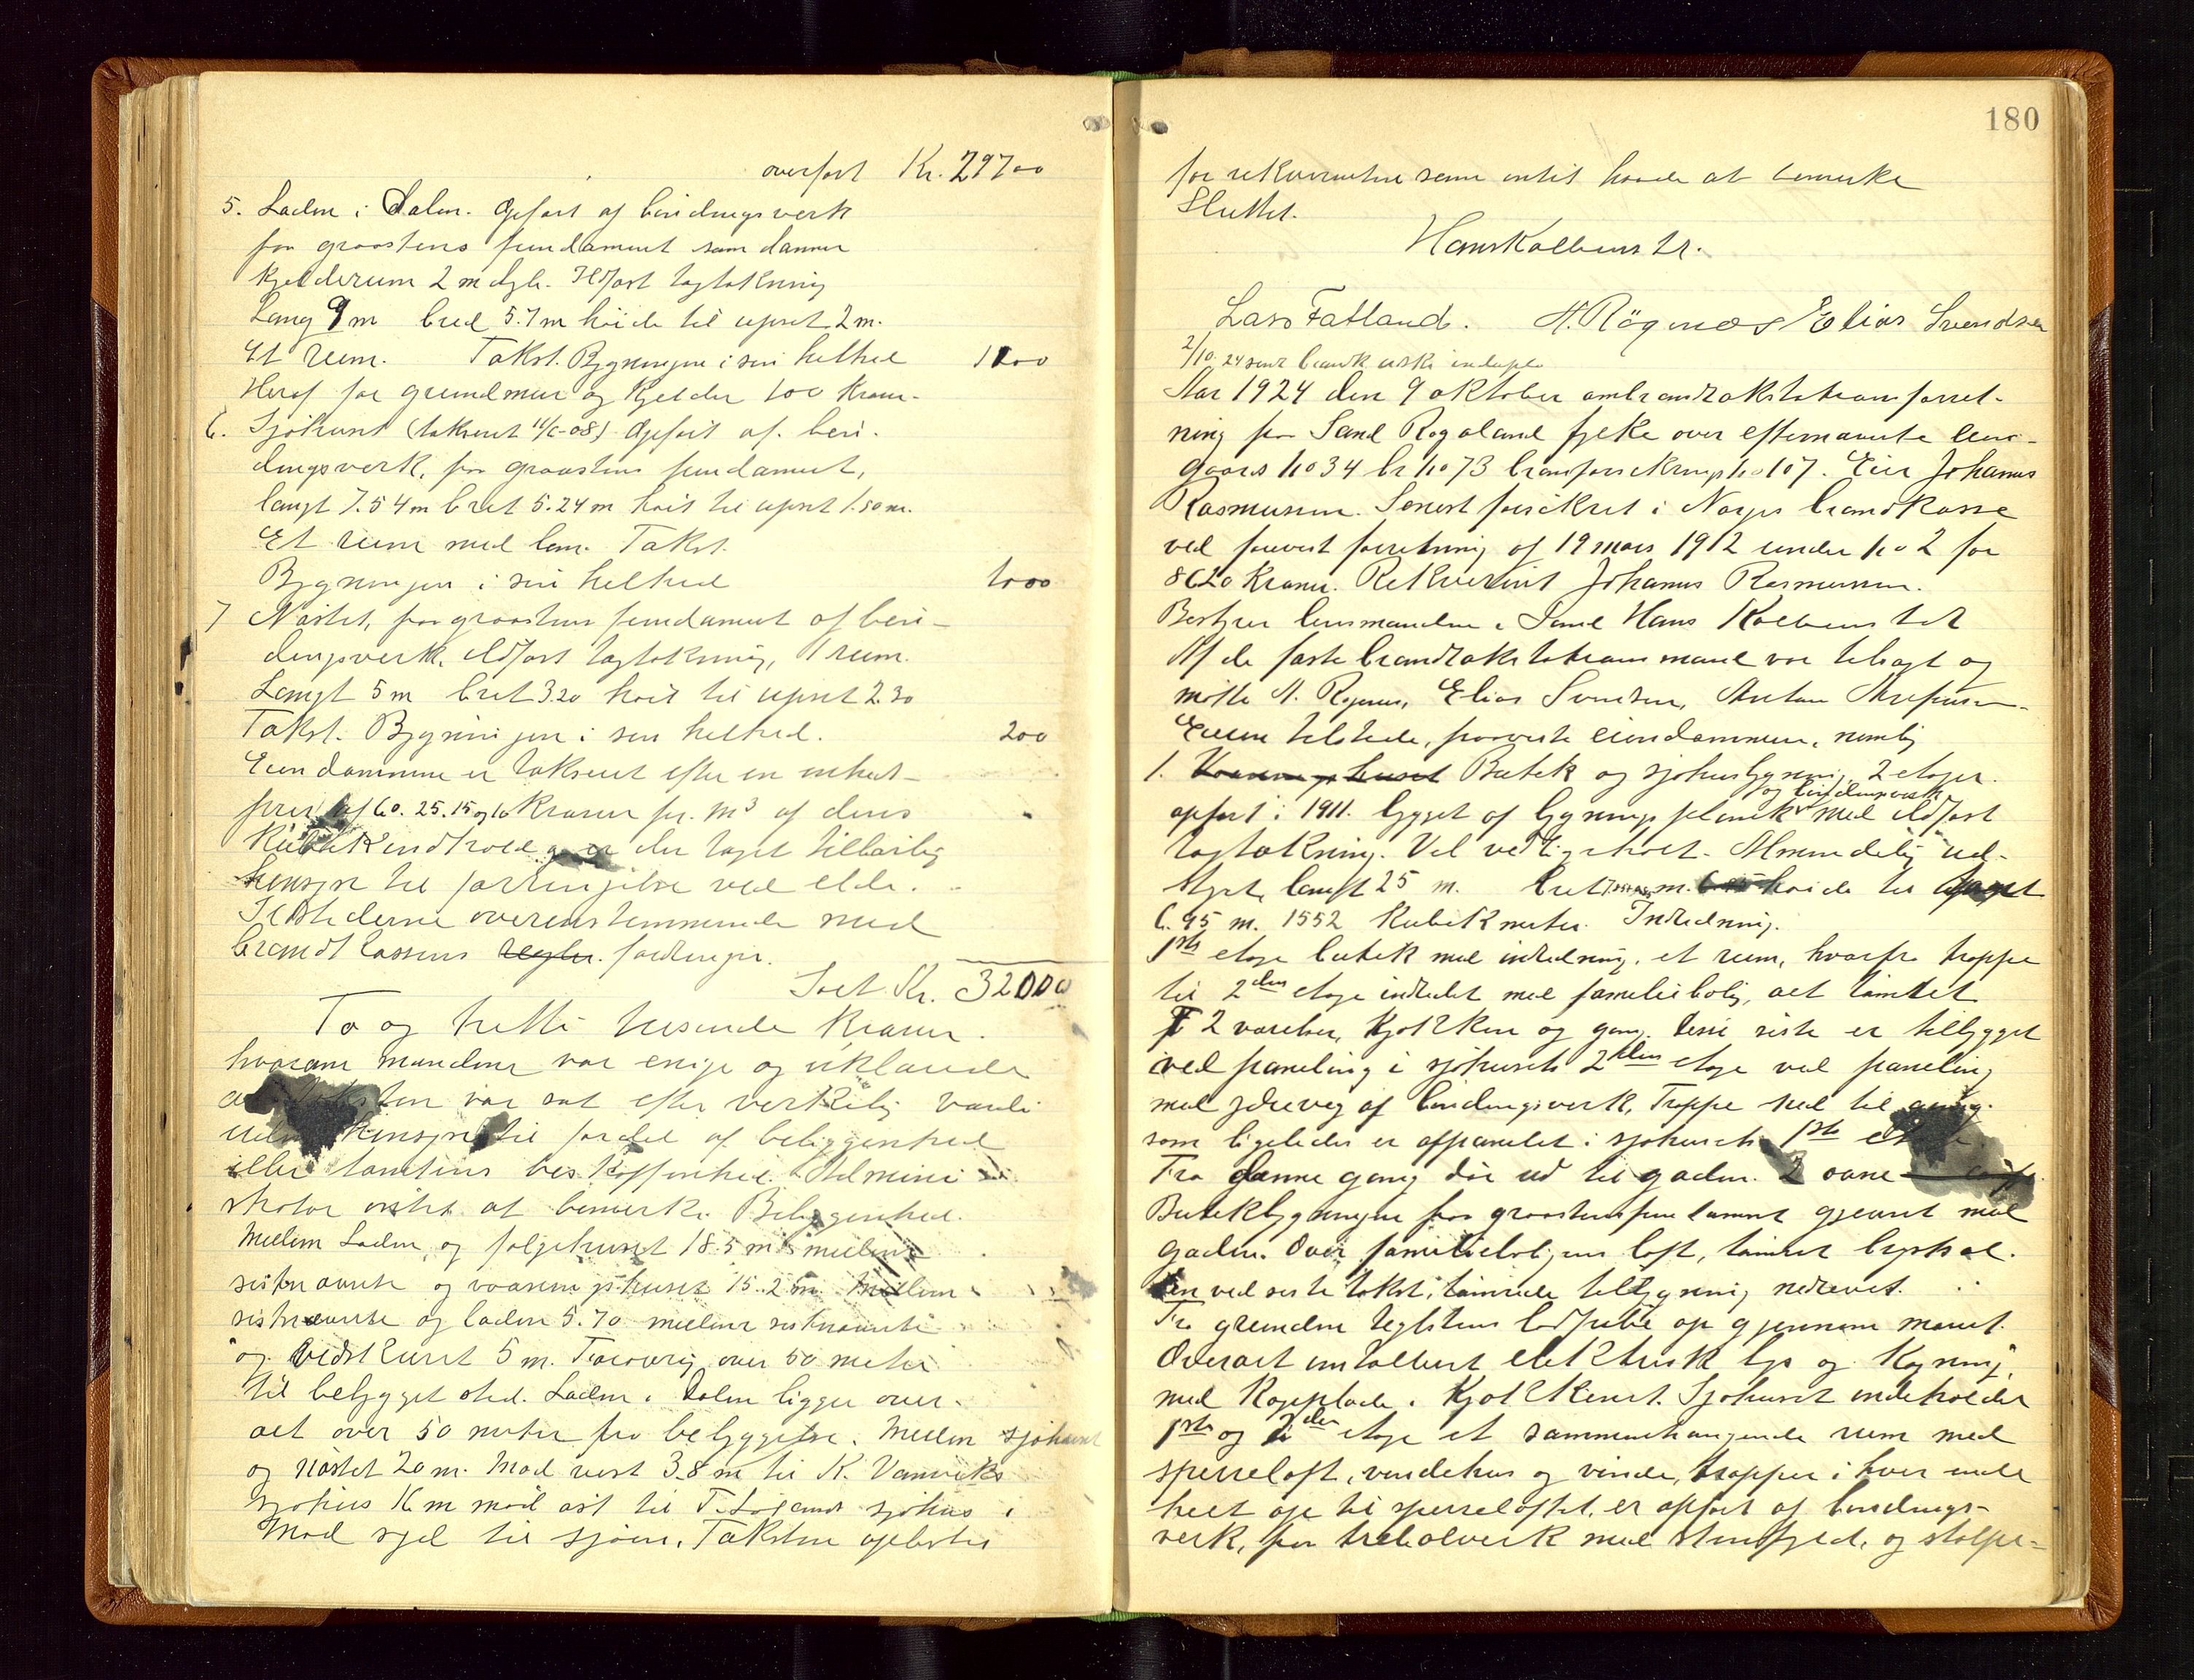 overført Kr. 29700
5. Laden i Dalen. Opført af bindingsverk
paa graastens fundament som danner
kjelderum 2 m dyb. Ildfast tagtækning
Lang 9 m bred 5.7 m höide til upset 2 m.
Et rum. Takst. Bygningen i sin helhed 1100
Heraf for grundmur og Kjelder 100 Kroner
6. Sjöhuset (takseret 11/6-08) Opført af bin-
dingsverk, paa graastens fundament,
langt 7.54 m bret 5.24 m höit til upset 1.50 m.
Et rum med lem. Takst.
Bygningen i sin helhed 1000
7 Nöstet, paa graastens fundament af bin-
dingsverk, ildfast tagtækning, 1 rum.
Langt 5 m bret 3.20 höit til upset 2.30
Takst. Bygningen i sin helhed. 200
Eiendommene er takseret efter en enhets-
pris af 60. 25. 15 og 10 Kroner pr. m3 af deres
Kubikindhold og er der taget tilbörlig
hensyn til forringelse ved elde.
Ildstederne overensstemmende med
brandkassens regler fordringer.
Ialt Kr. 32000
To og tretti tusende Kroner.
hvorom mændene var enige og erklærede
at taksten var sat efter verkelig værdi
uten hensyn til fordel af beliggenhed
eller tomtens beskaffenhed. Admini-
strator intet at bemerke. Beliggenhed.
Mellem Laden og følgehuset 18.5 m mellem
sistnævnte og vaaningshuset 15.2 m. Mellem
sistnævnte og laden 5.70 mellem sistnævnte
og vedskuret 5 m. Forövrig over 50 meter
til bebygget sted. Laden i Dalen ligger over-
alt over 50 meter fra bebyggelse. Mellem sjöhuset
og nöstet 20 m. Mod vest 3.8 m til K. Vanviks
sjöhus 16 m mod öst til T. Löland sjöhus i
Mod syd til sjöen. Taksten oplæstes
180
for rekvirenten som intet havde at bemerke
Sluttet.
Hans Kolbenstvt.
Lars Fatland. A. Rögenes Elias Svendsen
2/10 24 sendt brandk.
Aar 1924 den 9 oktober ombrandtakstationsforret-
ning paa Sand Rogaland fylke over efternævnte eien-
gaards no 34 br no 73 brandforsikrings no 107. Eier Johannes
Rasmussen. Senest forsikret i Norges brandkasse
ved forrest forretning af 19 mars 1912 under no 2 for
8620 Kroner. Rekvirent Johannes Rasmussen.
Bestyrer lensmanden i Sand Hans Kolbenstvt
Af de faste brandtakstationsmænd var tilsagt og
mötte A. Rögenes, Elias Svendsen,
Eieren tilstede, paaviste eiendommen, nemlig
1. Vaaningshuset Butik og sjöhusbygning, 2 etager.
og bindingsverk
opført i 1911. bygget af bygningsplank med ildfast
tagtækning. Vel vedligeholdt. Almindelig ud-
styrt, langt 25 m. bret m. höide til upset
6.95 m. 1552 Kubikmeter. Indredning.
1ste etage butik med indredning, et rum, hvorfra trappe
til 2den etage indredet med familiebolig, alt tömret
2 værelser, Kjökken og gang. Disse siste er tilbygget
ved paneling i sjöhusets 2den etage ved paneling
med ydrevæg af bindingsverk, Trappe ned til gang.
som ligeledes er afpanelet i sjöhusets 1ste etage
Fra denne gang dör ud til gaden. 2 ovne
Butikbygningen paa graastensfundament gjevnt med
gaden. Over familieboligen loft, tömret
Den ved siste takst, tömrede tilbygning nedrevet.
Fra grunden teglstens op gjennem mönet.
Overalt installeret elektrisk lys og Kogning,
med Kogeplade i Kjökkenet. Sjöhuset indeholder
1ste og 2den etage et sammenhængende rum med
sperreloft, vindehus og vinde, trapper i hver ende
helt op til sperreloftet, er opført af bindings-
verk, paa trebolverk med stenfyld, og stolpe-